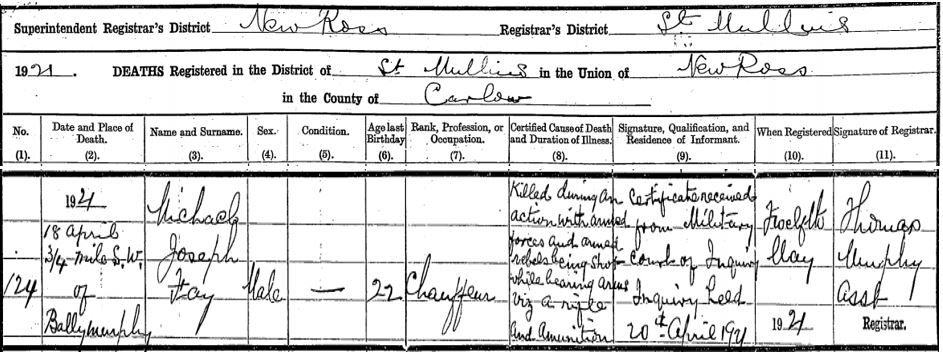 Superintendent Registrar's District New Ross Registrar's District St Mullins
1921. DEATHS Registered in the District of St Mullins in the Union of New Ross
in the County of Carlow
No. Date and Place of Death. Name and Surname. Sex. Condition. Age last Birthday Rank, Profession, or Occupation. Certified Cause of Death and Duration of Illness. Signature, Qualification, and Residence of Informant. When Registered Signature of Registrar.
(1). (2). (3). (4). (5). (6). (7). (8). (9). (10). (11).
124
1921
18 April
3/4 mile S.W.
of
Ballymurphy
Michael
Joseph
Fay
Male
—
22
Chauffeur
Killed during an
action with armed
forces and armed
rebels being shot
while bearing arms
viz a rifle
and amunition
Certificate received
from Military
Court of Inquiry
Inquiry held
20th April 1921
Twelfth
May
1921
Thomas
Murphy
Asst
Registrar.